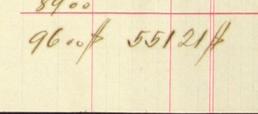 8900
9600 $ 55121 $